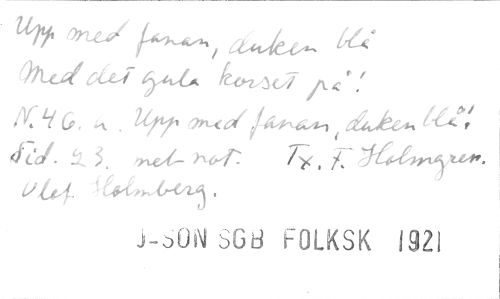 Upp med fanan, duken blå
Med det gula korset på!
N. 46. a. Upp med fanan, duken blå!
Sid. 23. met not. Tx. F. Holmgren.
Olof Holmberg.
J-SON SGB FOLKSK 1921